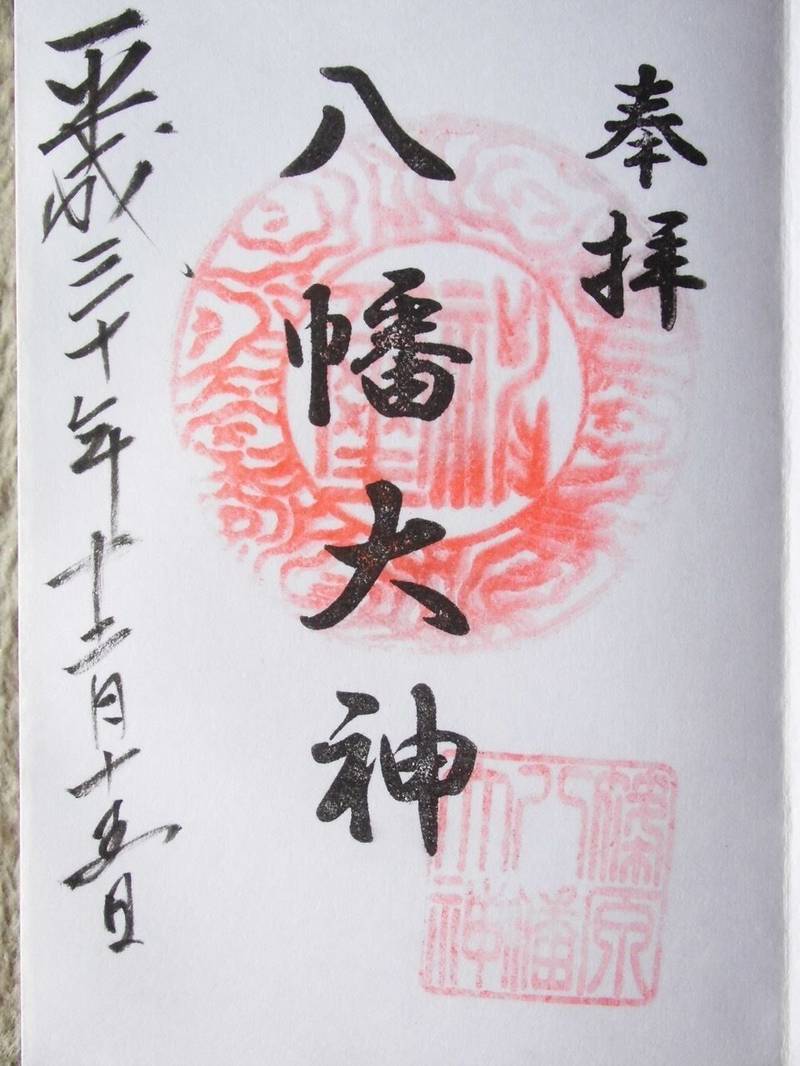 奉拝
八幡大神
篠原
八幡
大神
平成三十年十二月十五日